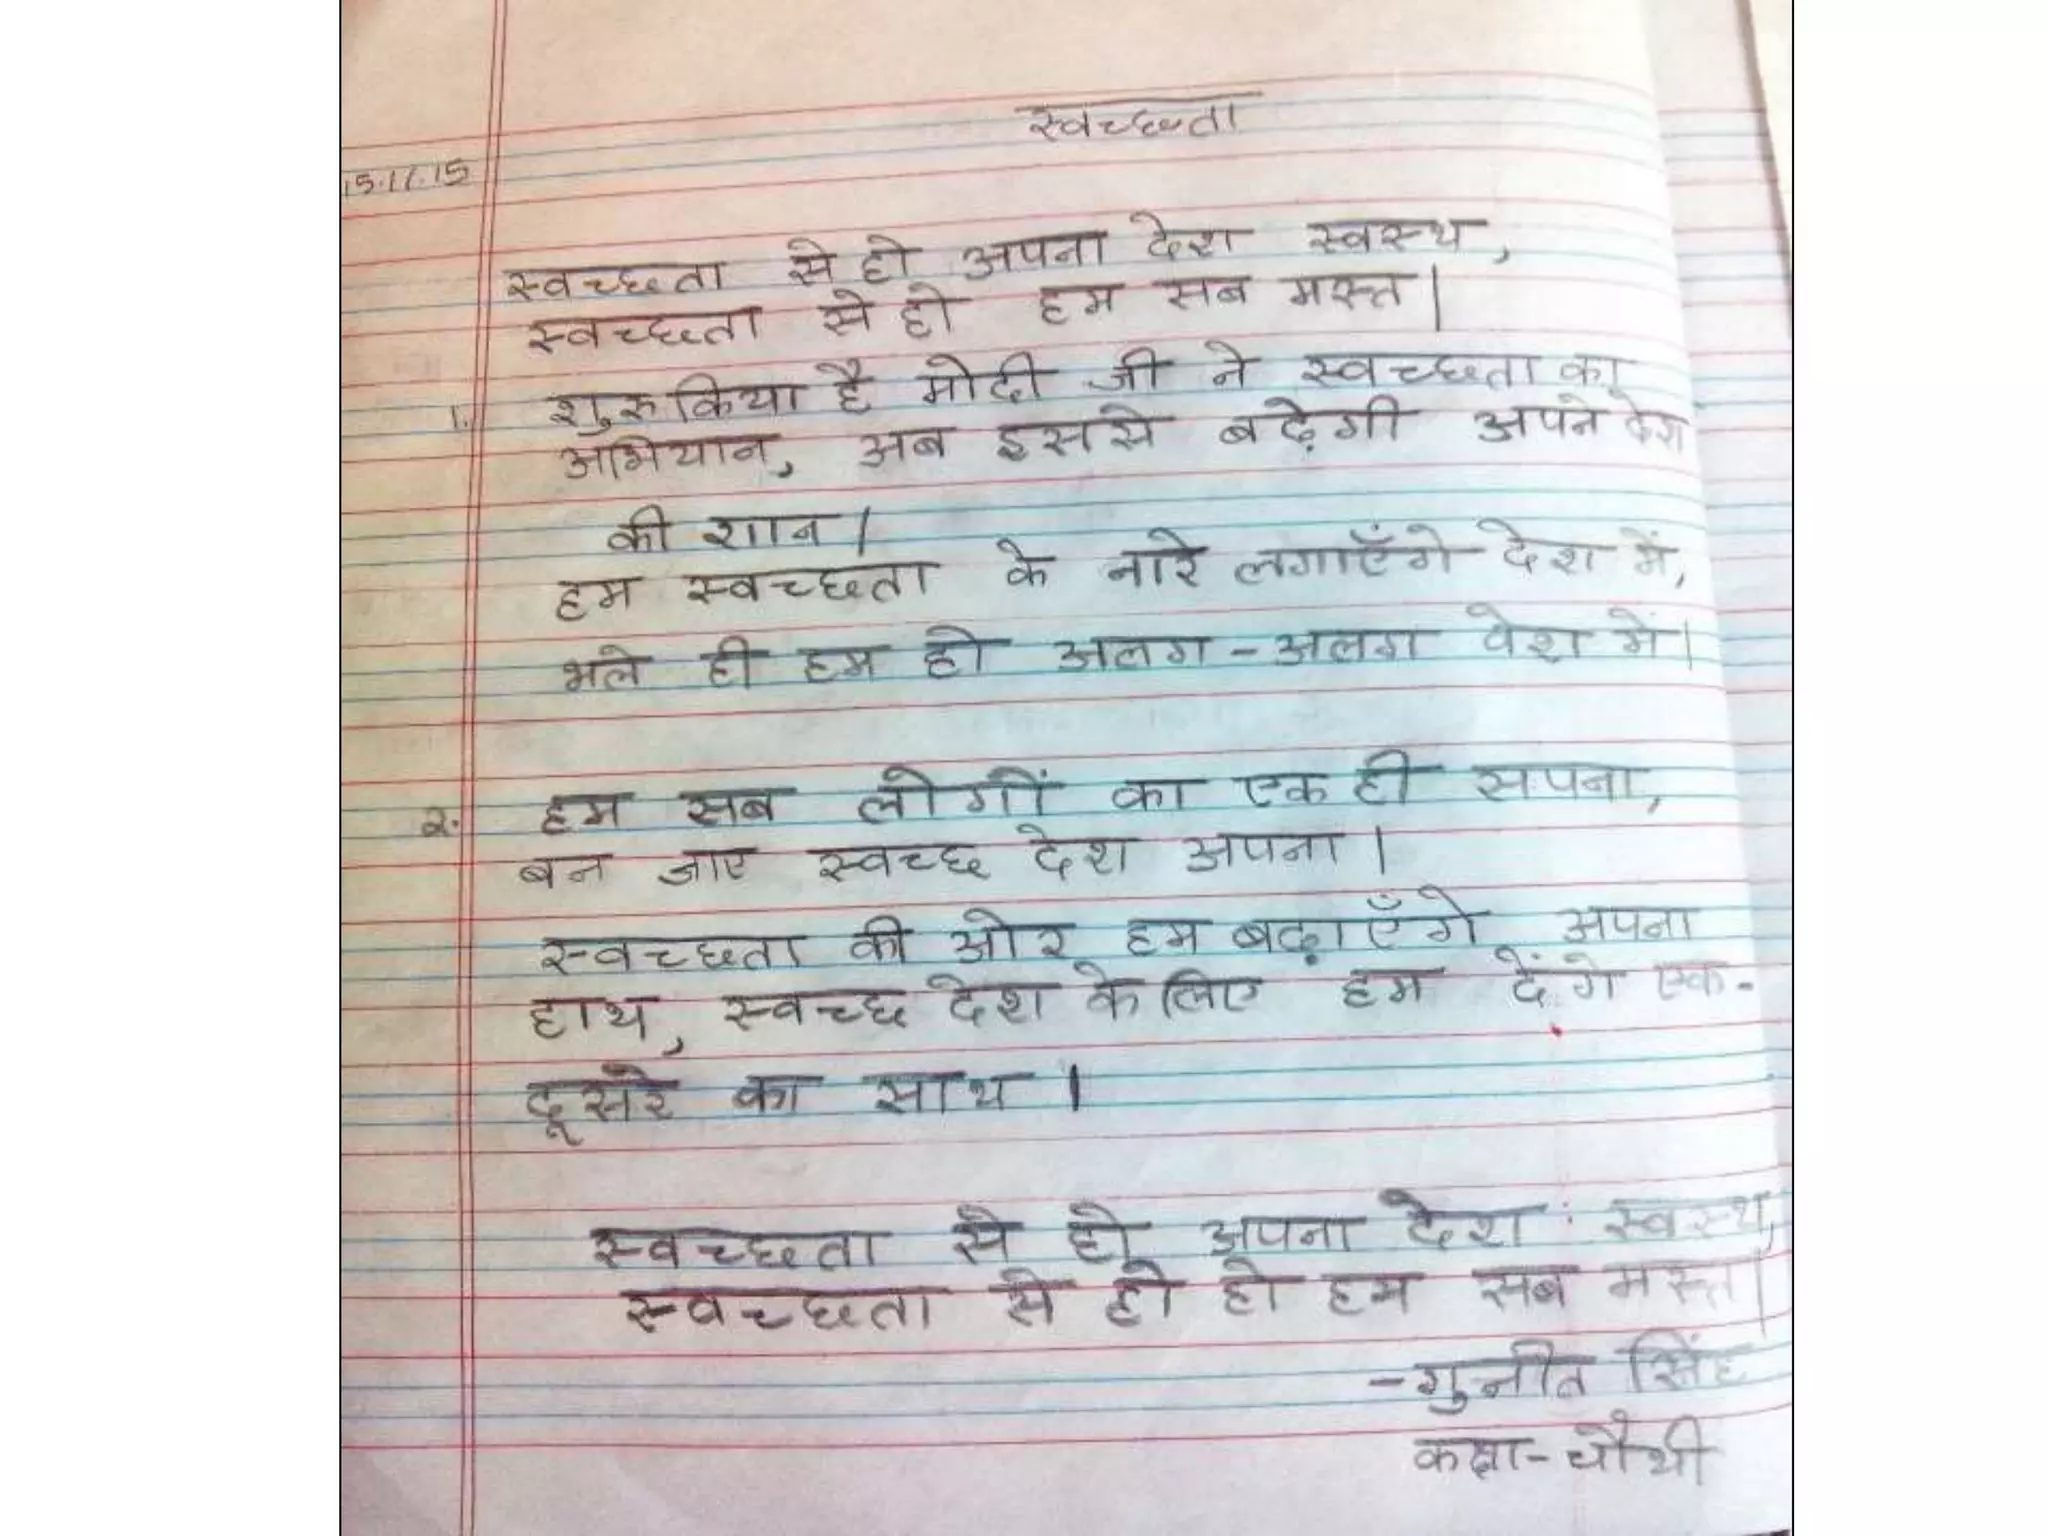 स्वच्छता
15.11.15
स्वच्छता से हो अपना देश स्वस्थ,
स्वच्छता से हो हम सब मस्त।
1. शुरु किया है मोदी जी ने स्वच्छता का
अभियान, अब इससे बढ़ेगी अपने देश
की शान।
हम स्वच्छता के नारे लगाएँगे देश में,
भले ही हम हो अलग - अलग वेश में।
२. हम सब लोगों का एक ही सपना,
बन जाए स्वच्छ देश अपना।
स्वच्छता की ओर हम बढ़ाएँगे अपना
हाथ, स्वच्छ देश के लिए हम देंगे एक-
दूसरे का साथ।
स्वच्छता से हो अपना देश स्वस्थ,
स्वच्छता से हो हो हम सब मस्त।
- गुनीत सिंह
कक्षा - चौथी